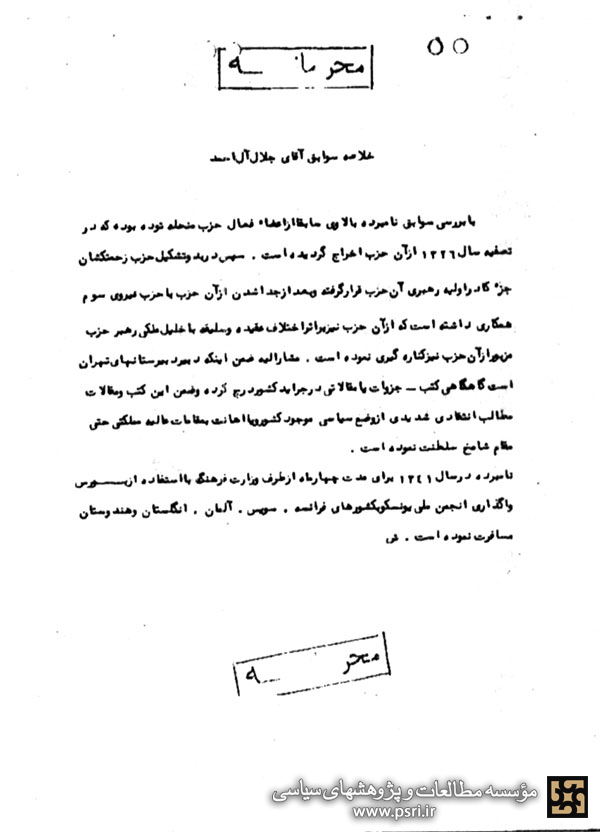 محرمانه
خلاصه سوابق آقای جلال آل احمد
با بررسی سوابق نامبرده بالا وی سابقا از اعضاء فعال حزب منحله توده بوده که در
تصفیه سال ۱۳۲۶ از آن حزب اخراج گردیده است . سپس در بدو تشکیل حزب زحمتکشان
جزء کادر اولیه رهبری آن حزب قرار گرفته و بعد از جدا شدن از آن حزب با حزب نیروی سوم
همکاری داشته است که از آن حزب نیز بر اثر اختلاف عقیده و سلیقه با خلیل ملکی رهبر حزب
مزبور از آن حزب نیز کناره گیری نموده است . مشارالیه ضمن اینکه دبیر دبیرستانهای تهران
است گاهگاهی کتب - جزوات یا مقالاتی در جراید کشور درج کرده و ضمن این کتب و مقالات
مطالب انتقادی شدیدی از وضع سیاسی موجود کشور و یا اهانت بمقامات عالیه مملکتی حتی
مقام شامخ سلطنت نموده است .
نامبرده در سال ۱۳۴۱ برای مدت چهار ماه از طرف وزارت فرهنگ با استفاده از بورس
واگذاری انجمن ملی یونسکو بکشورهای فرانسه ، سویس ، آلمان ، انگلستان و هندوستان
مسافرت نموده است . ش
محرمانه
مؤسسه مطالعات و پژوهشهای سیاسی
www.psri.ir